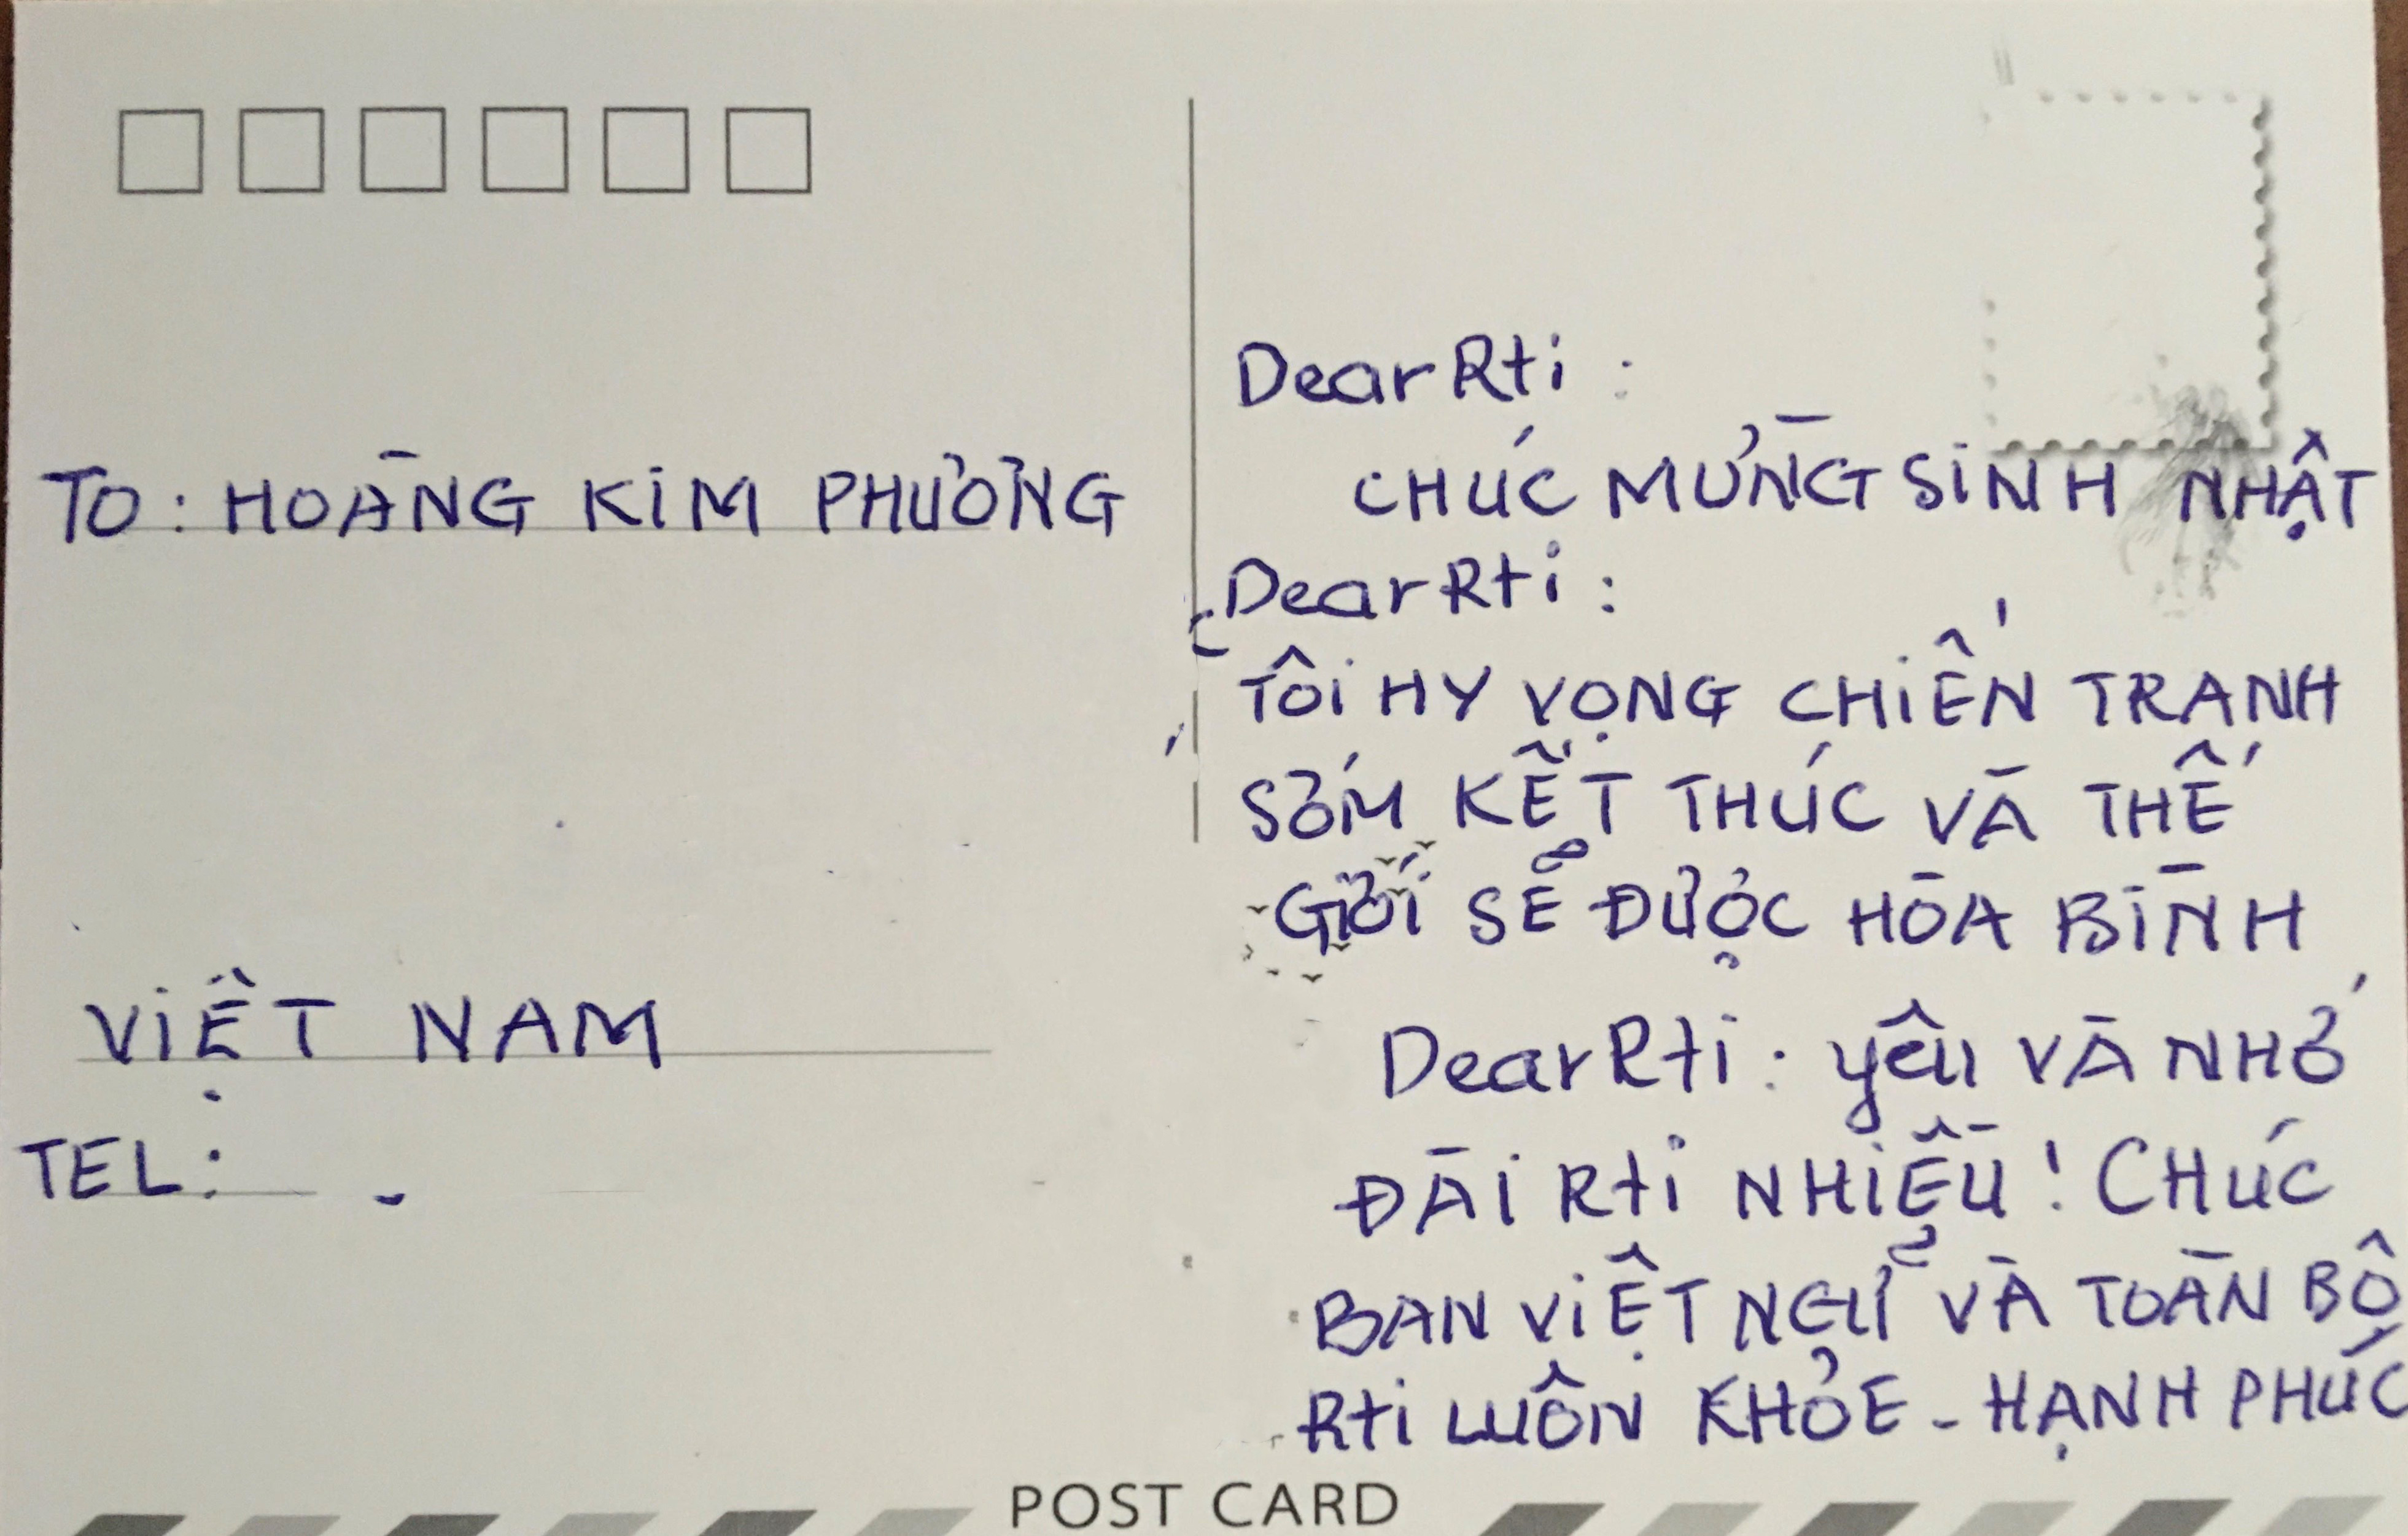 TO: HOÀNG KIM PHƯƠNG
VIỆT NAM
TEL:
Dear Rti:
CHÚC MỪNG SINH NHẬT
Dear Rti:
TÔI HY VỌNG CHIẾN TRANH
SỚM KẾT THÚC VÀ THẾ
GIỚI SẼ ĐƯỢC HÒA BÌNH
Dear Rti: yêu VÀ NHỚ
ĐÀI Rti NHIỀU! CHÚC
BAN VIỆT NGỮ VÀ TOÀN BỘ
Rti LUÔN KHỎE - HẠNH PHÚC
POST CARD